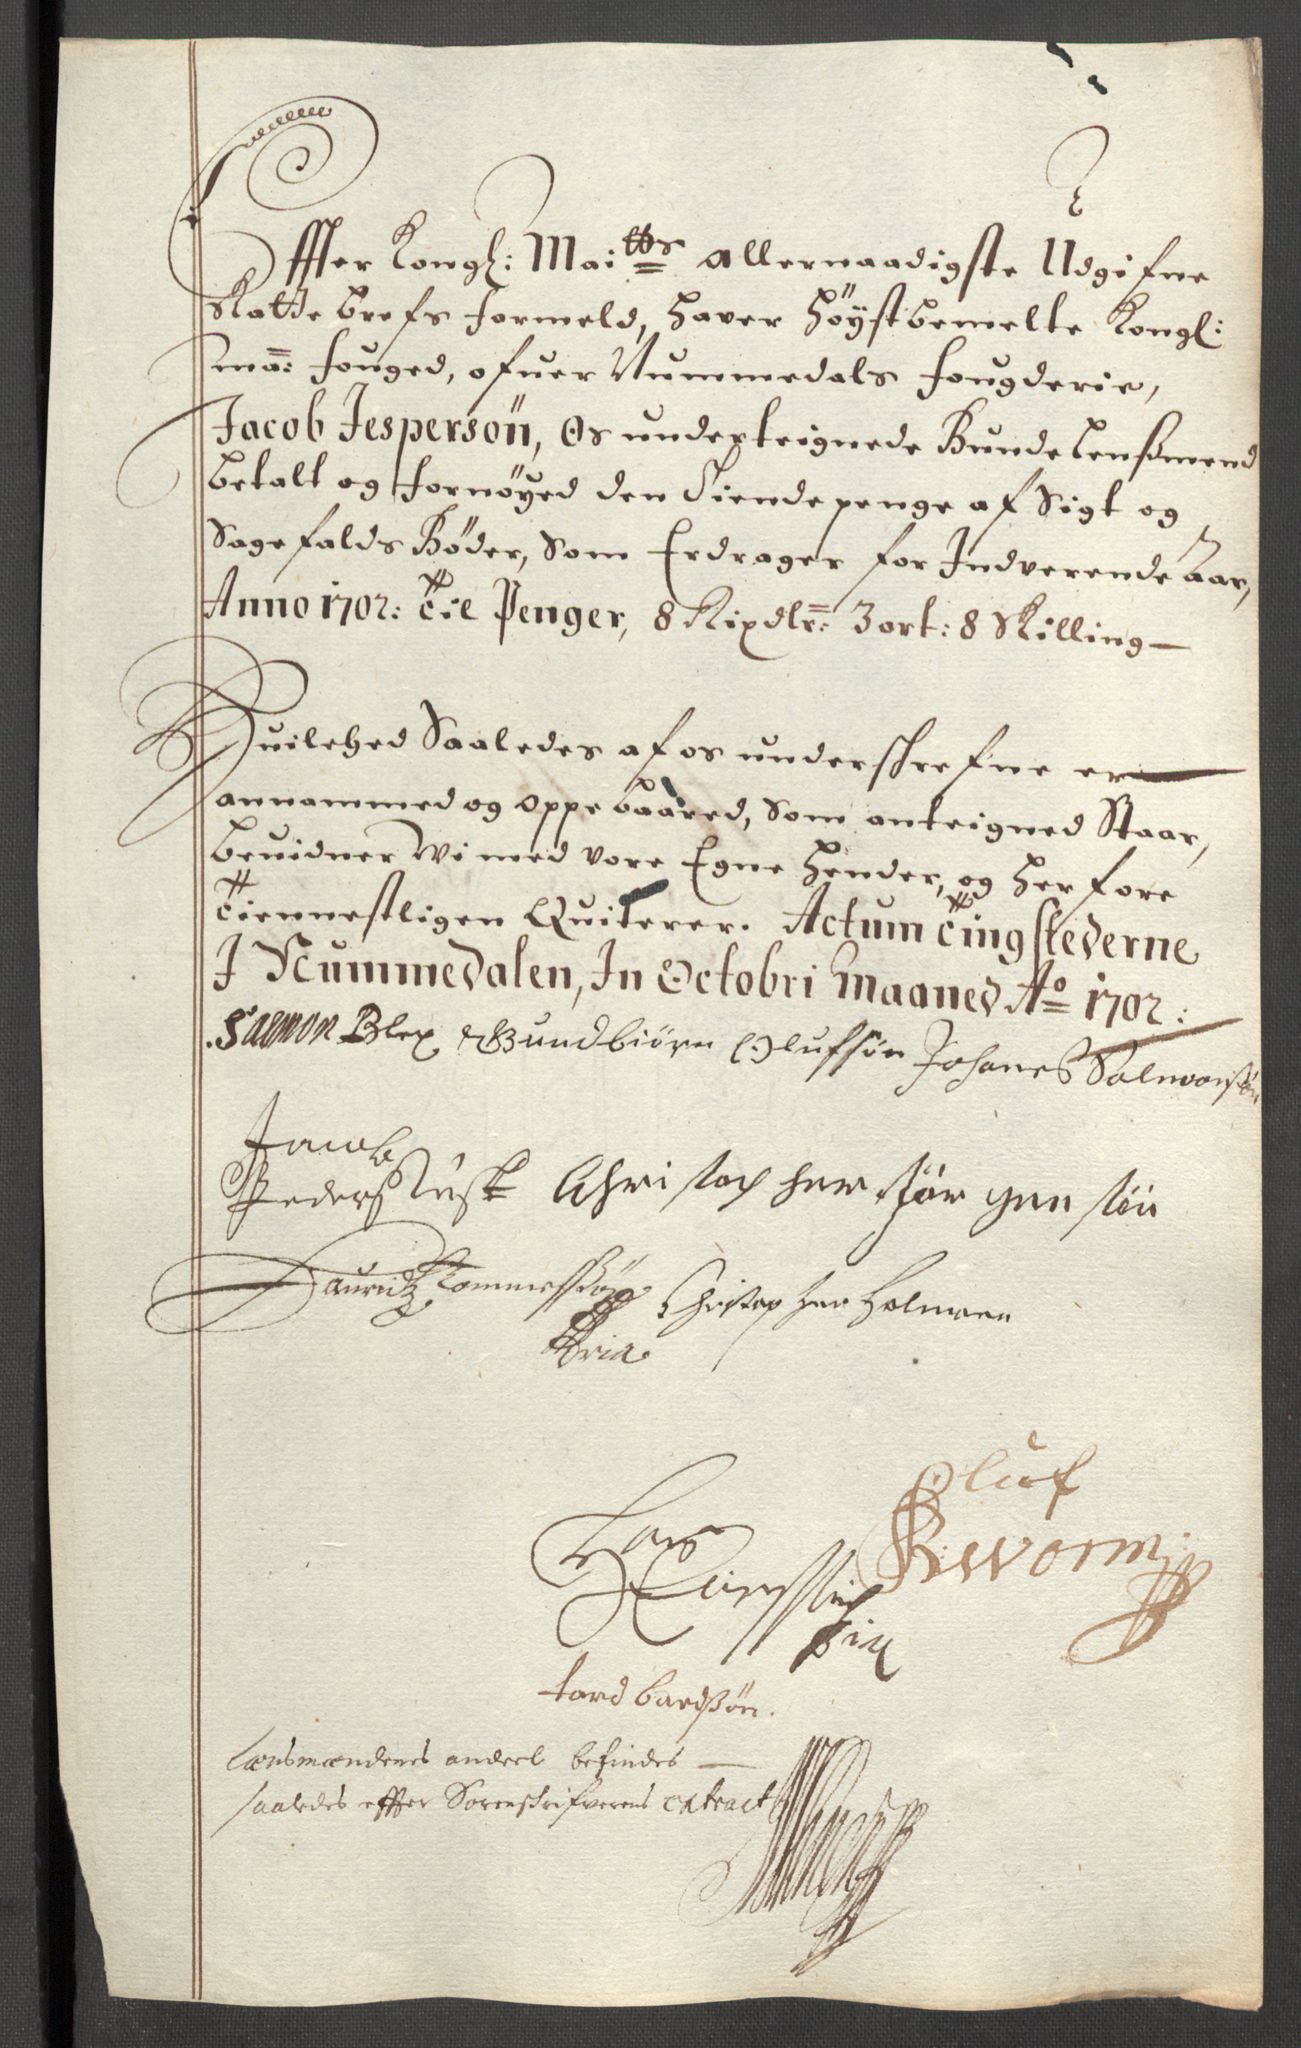 Effter Kongl: Maitts allernaadigste Udgifne
Skatte brefs formeld, hafver Höystbemelte Kongl:
Ma: fouged, ofuer Nummedals fougderie,
Jacob Jespersön, Os underteignede Bunde lensmend
betalt og fornöyed den Tiende penge af Sigt og
Sagefalds Böder, som Erdrager for Indverende Aar,
Anno 1702: til Penger, 8 Rixdlr: 3 ort: 8 Skilling
Huilched Saaledes af os underskrefne er
annammed og oppebaared, som anteigned Staar,
beuidner Wi med vore Egne Hender, og herfore
tiennestligen Quiterer. Actum tingstederne
I Nummedalen, In Octobri Maaned Ao 1702:
Saemon Blex Gundbiörn Olufsön Johanes Salmonsön
Jacob
Peders Christopher Jörgensön
Lauritz Tommessön Christopher Holmen
Oluf
R: worm:
Lars
tord bardsön.
Lænsmændenes andeel befindes
saaledes effter Sorenskrifverens extract